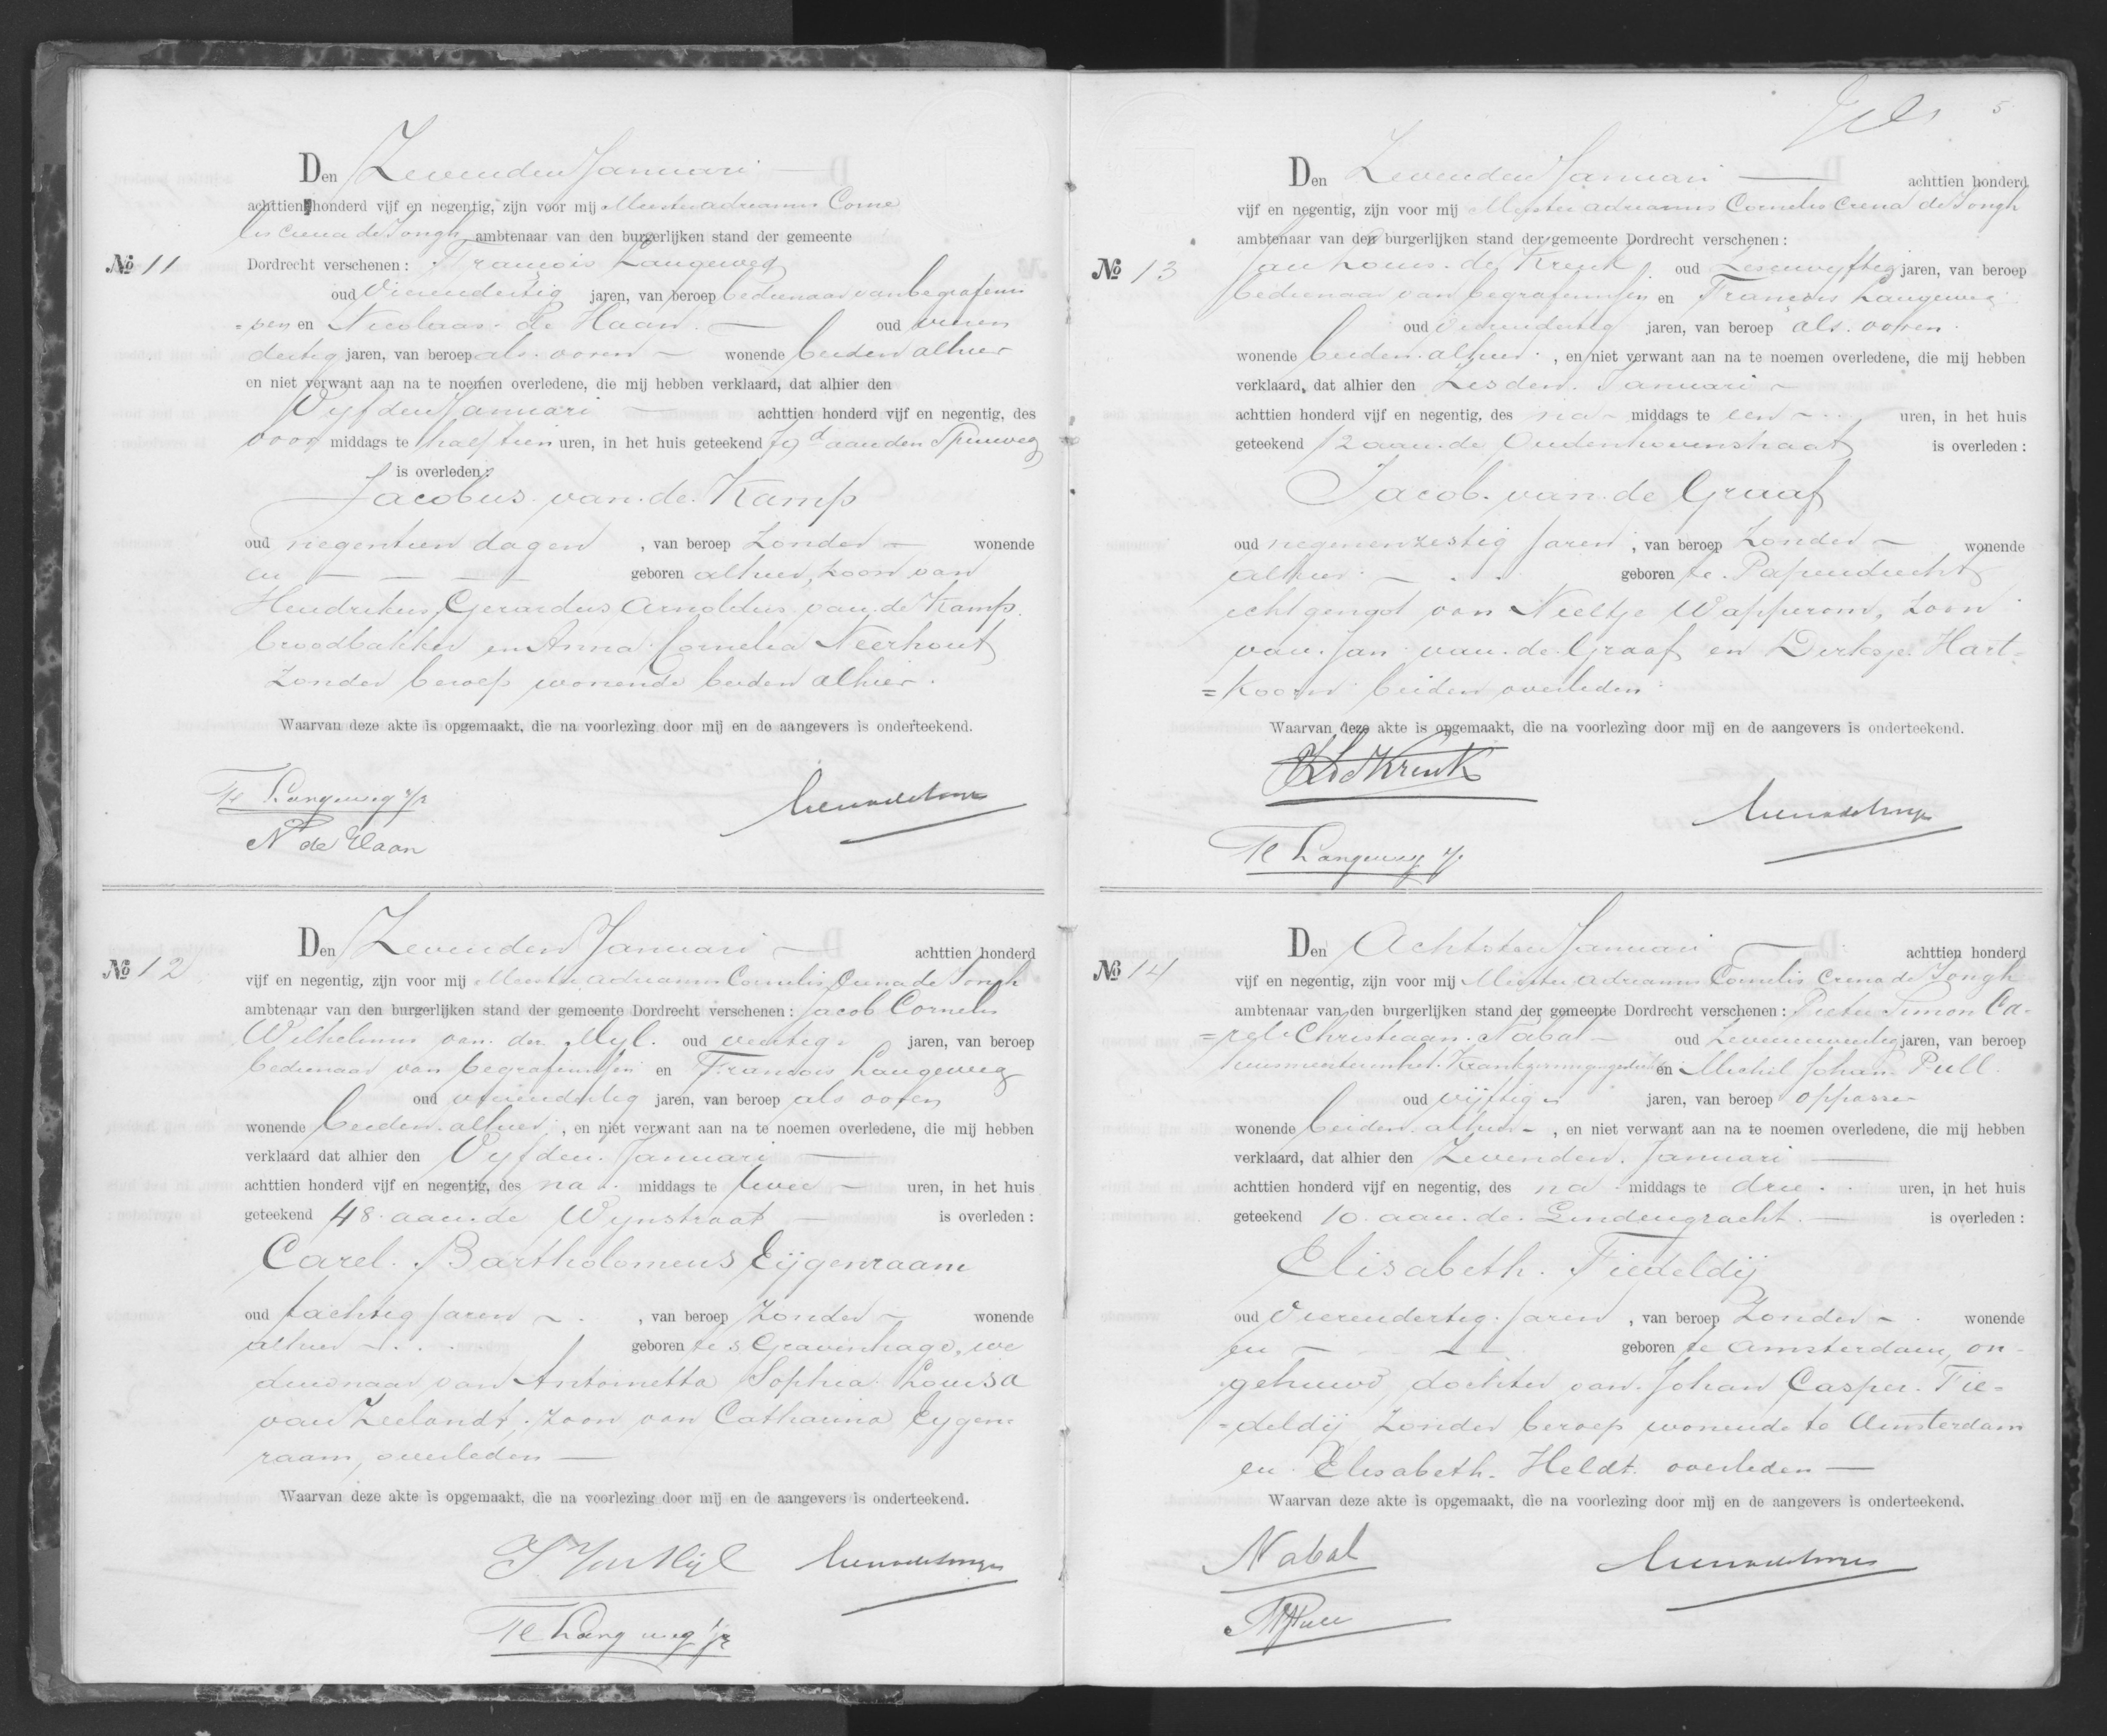 Den Zevenden Januari
achttien honderd vijf en negentig, zijn voor mij Meester Adrianus Corne
lis Crena de Iongh ambtenaar van den burgerlijken stand der gemeente
No 11 Dordrecht verschenen: Francois Langeweg
oud Vierendertig jaren, van beroep bedienaar van begrafenis
=sen en Nicolaas de Haan oud vieren
dertig jaren, van beroep als voren wonende beiden alhier
en niet verwant aan na te noemen overledene, die mij hebben verklaard, dat alhier den
Vyfden Januari achttien honderd vijf en negentig, des
voor middags te half tien uren, in het huis geteekend 79d aan den Spuiweg
is overleden:
Jacobus van de Kamp
oud negentien dagen, van beroep Zonder wonende
en geboren alhier, zoon van
Hendrikus Gerardus Arnoldus van de Kamp
broodbakker en Anna Cornelia Neerhout
Zonder beroep wonende beiden alhier.
Waarvan deze akte is opgemaakt, die na voorlezing door mij en de aangevers is onderteekend.
Fr Langeweg Jr
Crena de Iongh
N de Haan
Den Zevenden Januari achttien honderd
No 12 vijf en negentig, zijn voor mij Meester Adrianus Cornelis Crena de Iongh
ambtenaar van den burgerlijken stand der gemeente Dordrecht verschenen: Jacob Cornelis
Wilhelmus van der Myl oud veertig jaren, van beroep
bedienaar van begrafenissen en Francois Langeweg
oud vierendertig jaren, van beroep als voren
wonende beiden alhier, en niet verwant aan na te noemen overledene, die mij hebben
verklaard dat alhier den Vyfden Januari
achttien honderd vijf en negentig, des na middags te twee uren, in het huis
geteekend 48 aan de Wynstraat is overleden:
Carel Bartholomeus Eijgenraam
oud tachtig jaren, van beroep Zonder wonende
alhier geboren te s Gravenhage, we
duwnaar van Antoinetta Sophia Louisa
van Zeelandt, zoon van Catharina Eygen
raam, overleden
Waarvan deze akte is opgemaakt, die na voorlezing door mij en de aangevers is onderteekend.
Crena de Iongh
Fr Langeweg Jr
5
Den Zevenden Januari achttien honderd
vijf en negentig, zijn voor mij Meester Adrianus Cornelis Crena de Iongh
ambtenaar van den burgerlijken stand der gemeente Dordrecht verschenen:
No 13 Jan Louis de Kreuk oud Zesenvyftig jaren, van beroep
bedienaar van begrafenissen en Francois Langeweg
oud vierendertig jaren, van beroep als voren
wonende beiden alhier, en niet verwant aan na te noemen overledene, die mij hebben
verklaard, dat alhier den Zesden Januari
achttien honderd vijf en negentig, des na middags te een uren, in het huis
geteekend 12 aan de Oudenhovenstraat is overleden:
Jacob van de Graaf
oud negenenzestig jaren, van beroep Zonder wonende
alhier geboren te Papendrecht
echtgenoot van Neeltje Wapperom, zoon
van Jan van de Graaf en Dirksje Hart=
=koorn beiden overleden
Waarvan deze akte is opgemaakt, die na voorlezing door mij en de aangevers is onderteekend.
JL de Kreuk
Crena de Iongh
Fr Langeweg Jr
Den Achtsten Januari achttien honderd
No 14 vijf en negentig, zijn voor mij Meester Adrianus Cornelis Crena de Iongh
ambtenaar van den burgerlijken stand der gemeente Dordrecht verschenen: Pieter Simon Ca=
=rel Christiaan Nabal oud Zevenentwintig jaren, van beroep
en Michel Johan Pull
oud vijftig jaren, van beroep oppasser
wonende beiden alhier, en niet verwant aan na te noemen overledene, die mij hebben
verklaard, dat alhier den Zevenden Januari
achttien honderd vijf en negentig, des na middags te drie uren, in het huis
geteekend 10 aan de Lindengracht is overleden:
Elisabeth Fiedeldij
oud Vierendertig jaren, van beroep Zonder wonende
en geboren te Amsterdam, on=
gehuwd, dochter van Johan Casper Fie=
=deldij Zonder beroep wonende te Amsterdam
en Elisabeth Heldt overleden
Waarvan deze akte is opgemaakt, die na voorlezing door mij en de aangevers is onderteekend.
Nabal
Crena de Iongh
MJPull